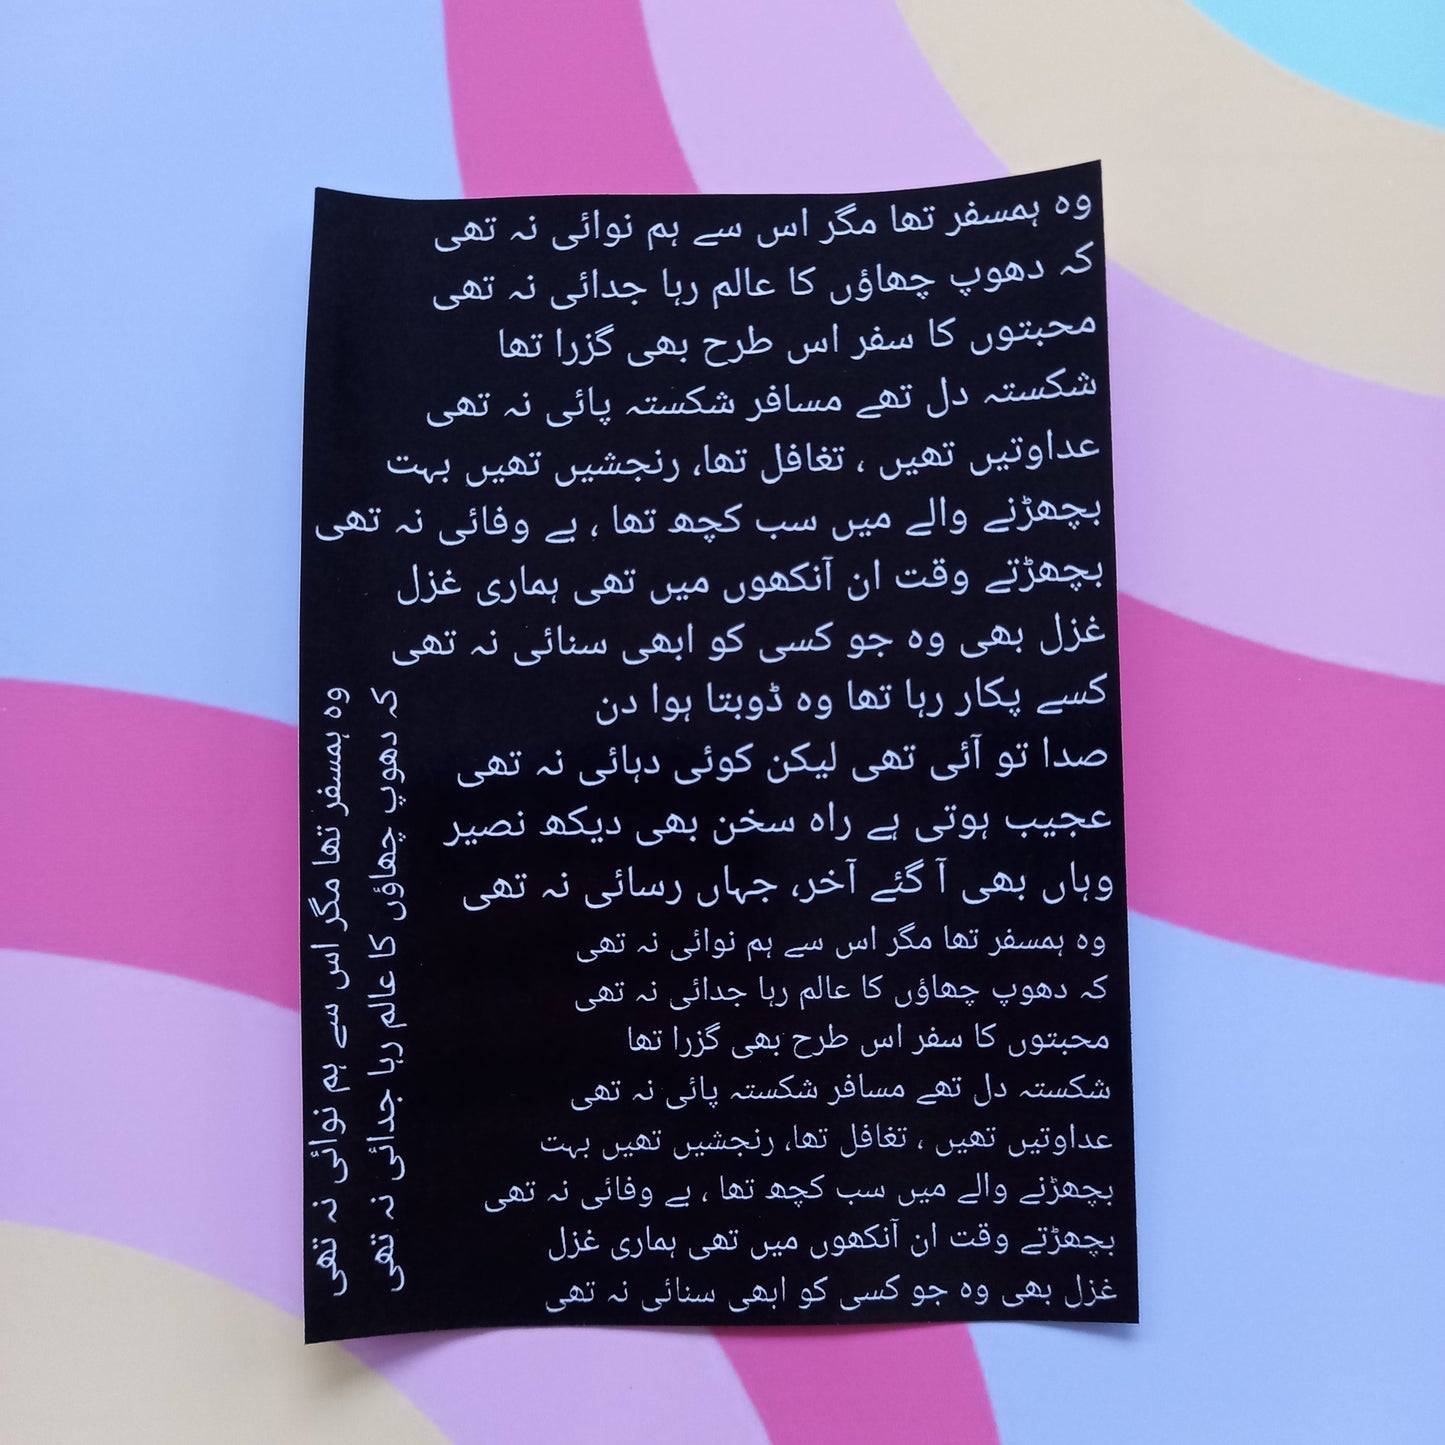 وہ ہمسفر تھا مگر اس سے ہم نوائی نہ تھی
کہ دھوپ چھاؤں کا عالم رہا جدائی نہ تھی
محبتوں کا سفر اس طرح بھی گزرا تھا
شکستہ دل تھے مسافر شکستہ پائی نہ تھی
عداوتیں تھیں ، تغافل تھا، رنجشیں تھیں بہت
بچھڑنے والے میں سب کچھ تھا ، بے وفائی نہ تھی
بچھڑتے وقت ان آنکھوں میں تھی ہماری غزل
غزل بھی وہ جو کسی کو ابھی سنائی نہ تھی
کسے پکار رہا تھا وہ ڈوبتا ہوا دن
صدا تو آئی تھی لیکن کوئی دہائی نہ تھی
عجیب ہوتی ہے راہ سخن بھی دیکھ نصیر
وہاں بھی آ گئے آخر، جہاں رسائی نہ تھی
وہ ہمسفر تھا مگر اس سے ہم نوائی نہ تھی
کہ دھوپ چھاؤں کا عالم رہا جدائی نہ تھی
محبتوں کا سفر اس طرح بھی گزرا تھا
شکستہ دل تھے مسافر شکستہ پائی نہ تھی
عداوتیں تھیں ، تغافل تھا، رنجشیں تھیں بہت
بچھڑنے والے میں سب کچھ تھا ، بے وفائی نہ تھی
بچھڑتے وقت ان آنکھوں میں تھی ہماری غزل
غزل بھی وہ جو کسی کو ابھی سنائی نہ تھی
وہ ہمسفر تھا مگر اس سے ہم نوائی نہ تھی
کہ دھوپ چھاؤں کا عالم رہا جدائی نہ تھی